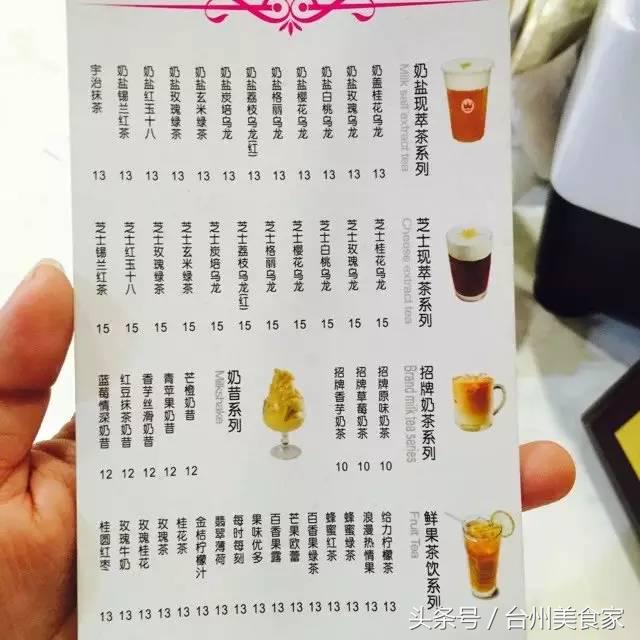 奶盐现萃茶系列
Milk salt extract tea
奶盖桂花乌龙 13
奶盐玫瑰乌龙 13
奶盐白桃乌龙 13
奶盐樱花乌龙 13
奶盐格丽乌龙 13
奶盐荔枝乌龙(红) 13
奶盐炭培乌龙 13
奶盐玄米绿茶 13
奶盐玫瑰绿茶 13
奶盐红玉十八 13
奶盐锡兰红茶 13
宇治抹茶 13
芝士现萃茶系列
Cheese extract tea
芝士桂花乌龙 15
芝士玫瑰乌龙 15
芝士白桃乌龙 15
芝士樱花乌龙 15
芝士格丽乌龙 15
芝士荔枝乌龙(红) 15
芝士炭培乌龙 15
芝士玄米绿茶 15
芝士玫瑰绿茶 15
芝士红玉十八 15
芝士锡兰红茶 15
招牌奶茶系列
Brand milk tea series
招牌原味奶茶 10
招牌草莓奶茶 10
招牌香芋奶茶 10
奶昔系列
Milkshake
芒橙奶昔 12
青苹果奶昔 12
香芋丝滑奶昔 12
红豆抹茶奶昔 12
蓝莓情深奶昔 12
鲜果茶饮系列
Fruit Tea
给力柠檬茶 13
浪漫热情果 13
蜂蜜绿茶 13
蜂蜜红茶 13
百香果绿茶 13
芒果欧蕾 13
百香果露 13
果味优多 13
每时每刻 13
翡翠薄荷 13
金桔柠檬汁 13
桂花茶 13
玫瑰茶 13
玫瑰桂花 13
玫瑰牛奶 13
桂圆红枣 13
头条号 / 台州美食家